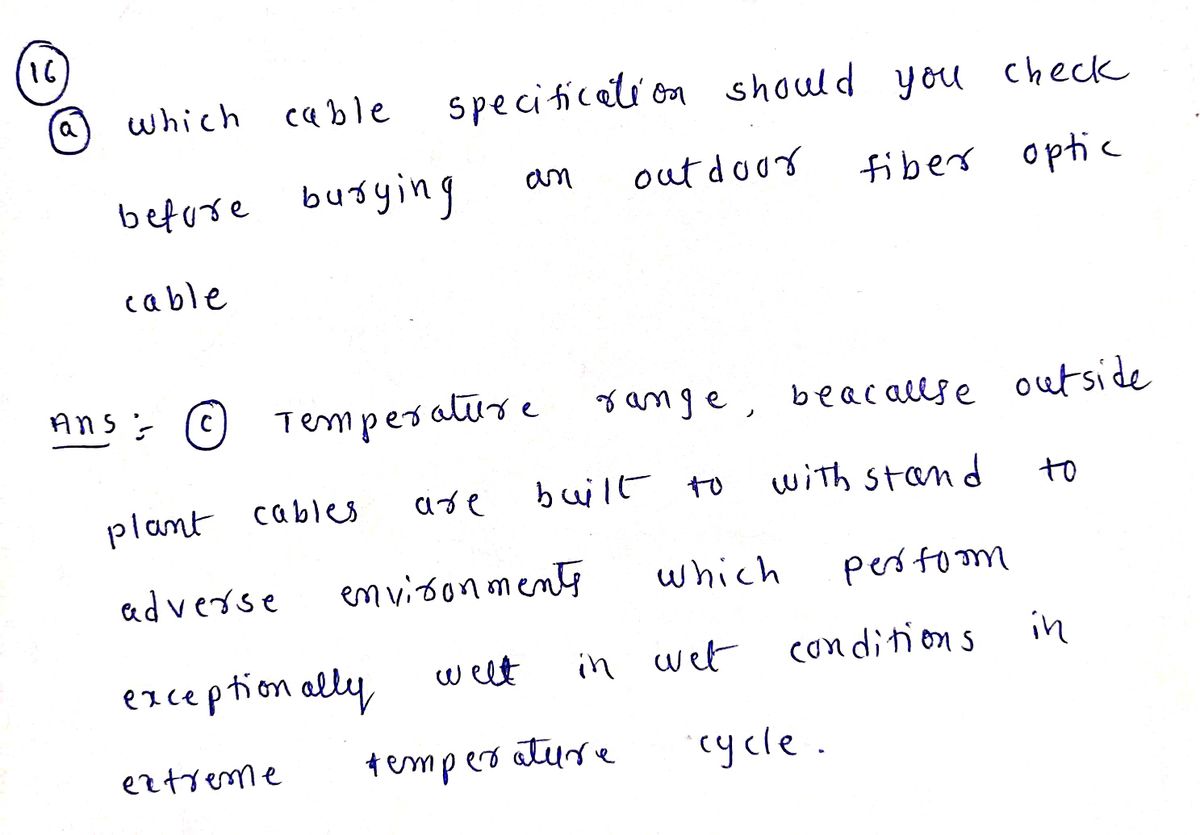 16
a which cable specification should you check
before burying an outdoor fiber optic
cable
Ans :- c Temperature range, beacause outside
plant cables are built to withstand to
adverse environments which perform
exceptionally well in wet conditions in
extreme temperature cycle.